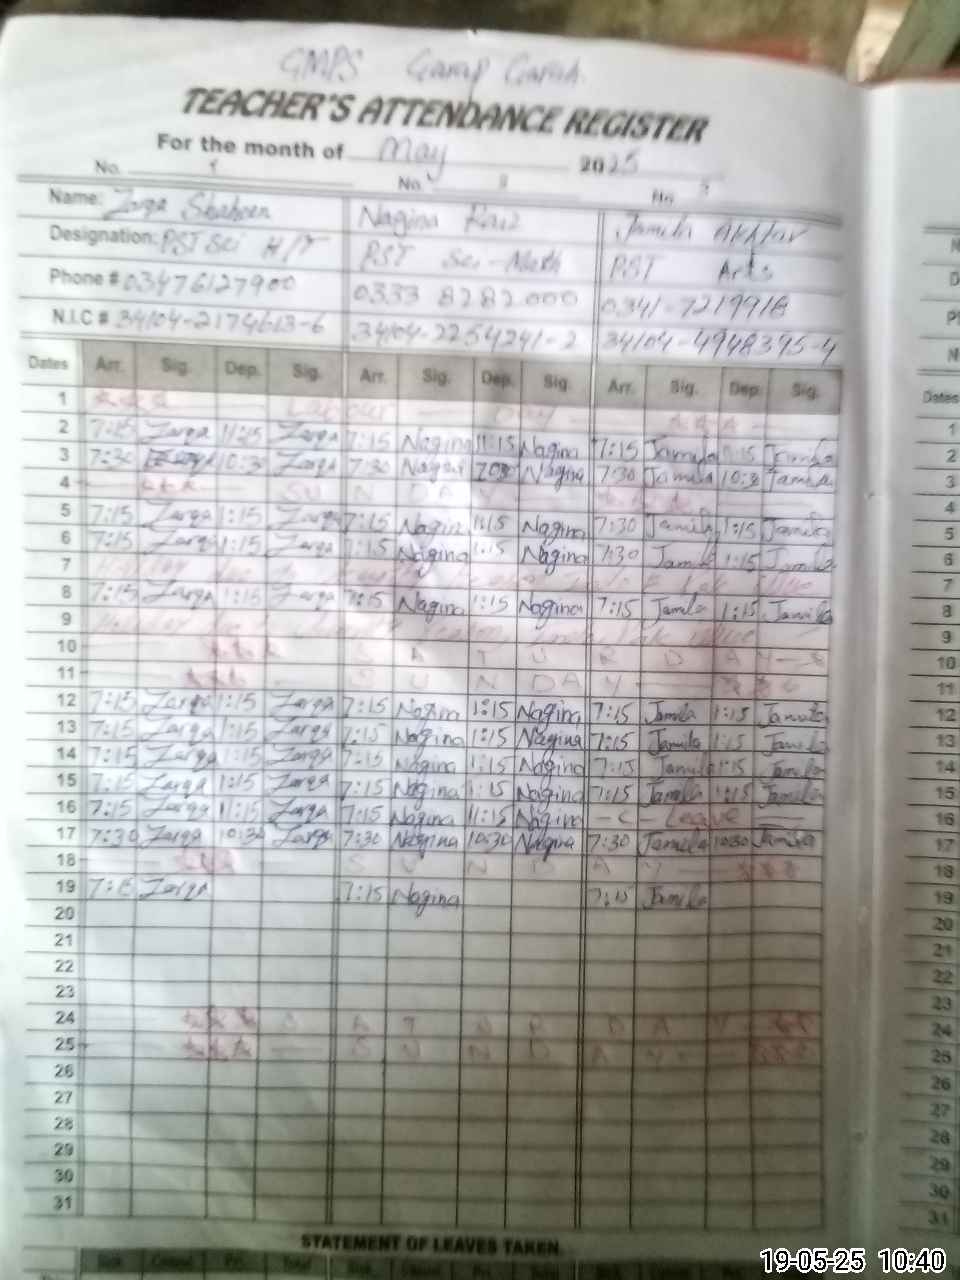 GMPS Camp Garah.
TEACHER'S ATTENDANCE REGISTER
For the month of May 2025
No. 1 No. 2 No. 3
Name: Zarqa Shaheen Nagina Raiz Jamila Akhtar
Designation: PST Sci H/T PST Sci-Math PST Arts
Phone # 03476127900 0333 8282000 0341-7219918
N.I.C # 34104-2174613-6 34104-2254241-2 34104-4948395-4
Dates Arr. Sig. Dep. Sig. Arr. Sig. Dep. Sig. Arr. Sig. Dep. Sig.
1 Labour Day
2 7:15 Zarqa 11:15 Zarqa 7:15 Nagina 11:15 Nagina 7:15 Jamila 11:15 Jamila
3 7:30 Zarqa 10:30 Zarqa 7:30 Nagina 10:30 Nagina 7:30 Jamila 10:30 Jamila
4 SUNDAY
5 7:15 Zarqa 1:15 Zarqa 7:15 Nagina 1:15 Nagina 7:30 Jamila 1:15 Jamila
6 7:15 Zarqa 1:15 Zarqa 7:15 Nagina 1:15 Nagina 7:30 Jamila 1:15 Jamila
7 Holiday
8 7:15 Zarqa 1:15 Zarqa 7:15 Nagina 1:15 Nagina 7:15 Jamila 1:15 Jamila
9 Holiday
10 SATURDAY
11 SUNDAY
12 7:15 Zarqa 1:15 Zarqa 7:15 Nagina 1:15 Nagina 7:15 Jamila 1:15 Jamila
13 7:15 Zarqa 1:15 Zarqa 7:15 Nagina 1:15 Nagina 7:15 Jamila 1:15 Jamila
14 7:15 Zarqa 1:15 Zarqa 7:15 Nagina 1:15 Nagina 7:15 Jamila 1:15 Jamila
15 7:15 Zarqa 1:15 Zarqa 7:15 Nagina 1:15 Nagina 7:15 Jamila 1:15 Jamila
16 7:15 Zarqa 11:15 Zarqa 7:15 Nagina 11:15 Nagina - C - Leave
17 7:30 Zarqa 10:30 Zarqa 7:30 Nagina 10:30 Nagina 7:30 Jamila 10:30 Jamila
18 SUNDAY
19 7:15 Zarqa 7:15 Nagina 7:15 Jamila
20
21
22
23
24 SATURDAY
25 SUNDAY
26
27
28
29
30
31
STATEMENT OF LEAVES TAKEN.
Dates
1
2
3
4
5
6
7
8
9
10
11
12
13
14
15
16
17
18
19
20
21
22
23
24
25
26
27
28
29
30
31
19-05-25 10:40